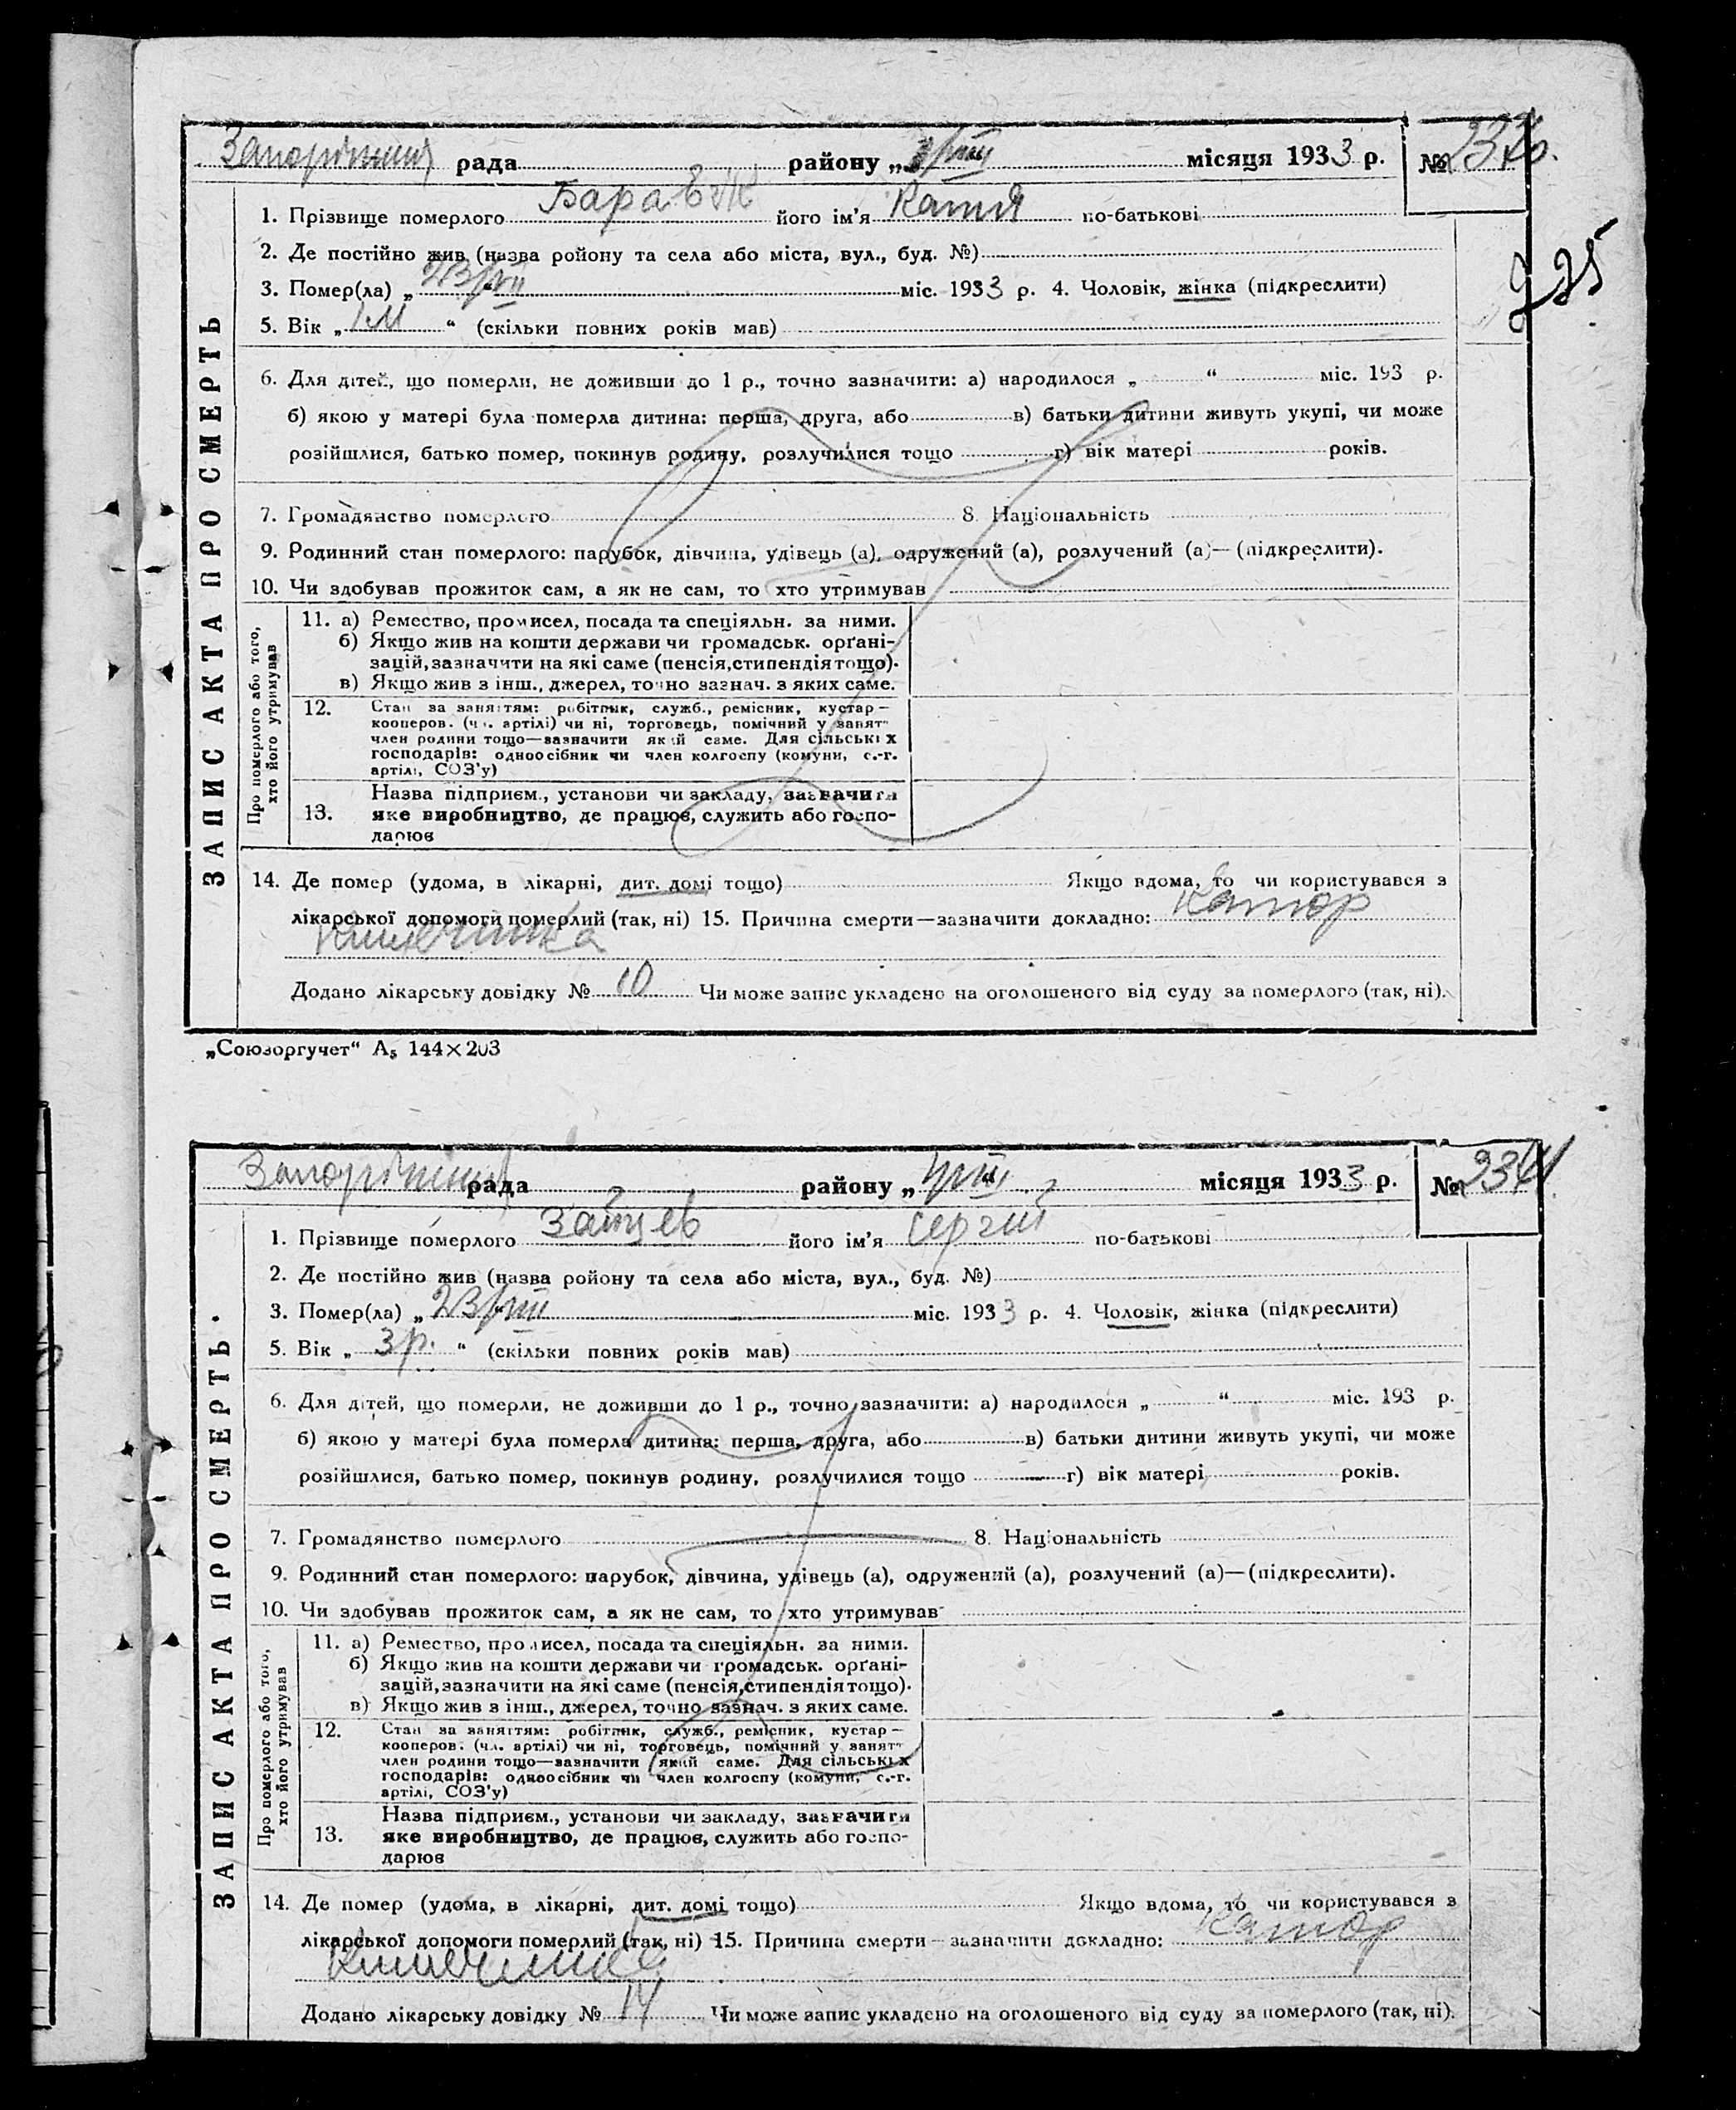 рада районуˮ „ місяця 1933 р. №
1. Прізвище померлого його ім'я Катя по-батькові
2. Де постійно жив (назва ройону та села або міста, вул., буд. №)
3. Помер(ла) „ 23/VII “ міс. 1933 р. 4. Чоловік, жінка (підкреслити)
5. Вік „ 1 м “ (скільки повних років мав)
6. Для дітей, що померли, не доживши до 1 р., точно зазначити: а) народилося „ “ міс. 193 р.
б) якою у матері була померла дитина: перша, друга, або в) батьки дитини живуть укупі, чи може
розійшлися, батько помер, покинув родину, розлучилися тощо г) вік матері років.
7. Громадянство померлого 8. Національність
9. Родинний стан померлого: парубок, дівчина, удівець (а), одружений (а), розлучений (а)— (підкреслити).
10. Чи здобував прожиток сам, а як не сам, то хто утримував
ЗАПИС АКТА ПРО СМЕРТЬ
Про померлого або того,
хто його утримував
11. а) Ремество, промисел, посада та спеціяльн. за ними.
б) Якщо жив на кошти держави чи громадськ. орґані-
зацій, зазначити на які саме (пенсія, стипендія тощо).
в) Якщо жив з інш., джерел, точно зазнач. з яких саме.
12. Стан за заняттям: робітник, служб., ремісник, кустар—
кооперов. (чл. артілі) чи ні, торговець, помічний у занят
член родини тощо—зазначити який саме. Для сільських
господарів: одноосібник чи член колгоспу (комуни, с.-г.
артілі, СОЗ'у)
Назва підприєм., установи чи закладу, зазначити
13. яке виробництво, де працює, служить або госпо-
дарює
14. Де помер (удома, в лікарні, дит. домі тощо) Якщо вдома, то чи користувався з
лікарської допомоги померлий (так, ні) 15. Причина смерти—зазначити докладно: Катор
кишечника
Додано лікарську довідку № 10 Чи може запис укладено на оголошеного від суду за померлого (так, ні).
„Союзоргучет“ А₅ 144×203
рада району „ місяця 1933 р. №
1. Прізвище померлого Зайцев його ім'я Сергій по-батькові
2. Де постійно жив (назва ройону та села або міста, вул., буд. №)
3. Помер(ла) „ 23/VIII “ міс. 1933 р. 4. Чоловік, жінка (підкреслити)
5. Вік „ 3 р. “ (скільки повних років мав)
6. Для дітей, що померли, не доживши до 1 р., точно зазначити: а) народилося „ “ міс. 193 р.
б) якою у матері була померла дитина: перша, друга, або в) батьки дитини живуть укупі, чи може
розійшлися, батько помер, покинув родину, розлучилися тощо г) вік матері років.
7. Громадянство померлого 8. Національність
9. Родинний стан померлого: парубок, дівчина, удівець (а), одружений (а), розлучений (а)—(підкреслити).
10. Чи здобував прожиток сам, а як не сам, то хто утримував
ЗАПИС АКТА ПРО СМЕРТЬ.
Про померлого або того,
хто його утримував
11. а) Ремество, промисел, посада та спеціяльн. за ними.
б) Якщо жив на кошти держави чи громадськ. орґані-
зацій, зазначити на які саме (пенсія, стипендія тощо).
в) Якщо жив з інш., джерел, точно зазнач. з яких саме.
12. Стан за заняттям: робітник, служб., ремісник, кустар—
кооперов. (чл. артілі) чи ні, торговець, помічний у занят
член родини тощо—зазначити який саме. Для сільських
господарів: одноосібник чи член колгоспу (комуни, с.-г.
артілі, СОЗ'у)
Назва підприєм., установи чи закладу, зазначити
13. яке виробництво, де працює, служить або госпо-
дарює
14. Де помер (удома, в лікарні, дит. домі тощо) Якщо вдома, то чи користувався з
лікарської допомоги померлий (так, ні) 15. Причина смерти—зазначити докладно: Катор
кишечника
Додано лікарську довідку № 14 Чи може запис укладено на оголошеного від суду за померлого (так, ні).